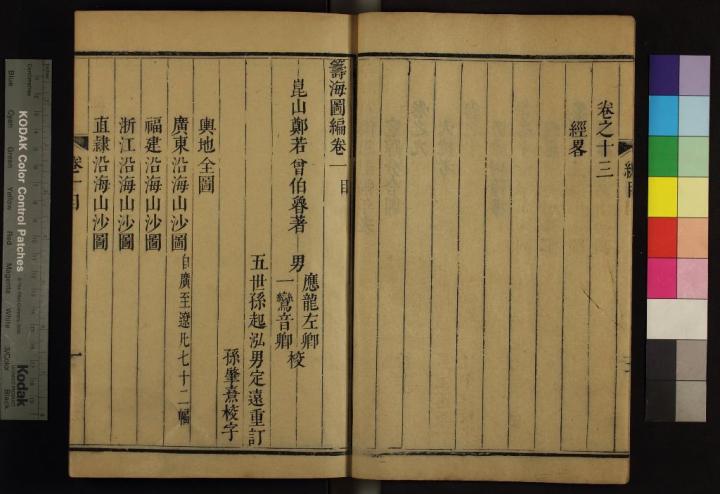 卷之十三
經畧
籌海圖編卷一
目
崑山鄭若曾伯魯著
男
應龍左卿
一鸞音卿
校
五世孫起泓男定遠重訂
孫肇熹校字
輿地全圖
廣東沿海山沙圖
自廣至遼凡七十二幅
福建沿海山沙圖
浙江沿海山沙圖
直隸沿海山沙圖
KODAK Color Control Patches
Kodak
Blue
Cyan
Green
Yellow
Red
Magenta
White
3/Color
Black